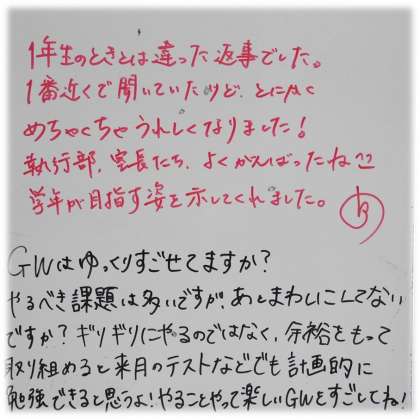 1年生のときとは違った返事でした。
1番近くで聞いていたけど、とにかく
めちゃくちゃうれしくなりました!
執行部、室長たち、よくがんばったね
学年が目指す姿を示してくれました。
GWはゆっくりすごせてますか?
やるべき課題は多いですが、あとまわしにしてない
ですか?ギリギリにやるのではなく、余裕をもって
取り組めると来月のテストなどでも計画的に
勉強できると思うよ!やることやって楽しいGWをすごしてね!